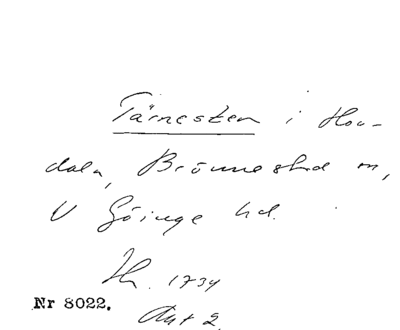 Tärnesten i Hov-
dala, Brönnestad sn,
V Göinge hd.
Hr. 1734
Nr 8022.